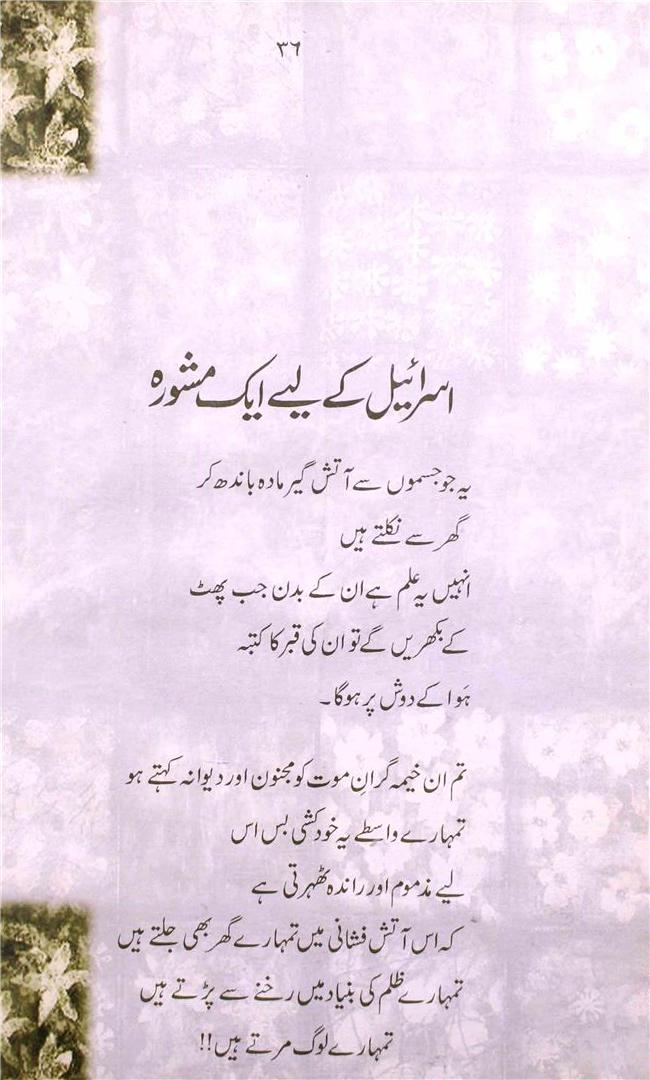 ۳۶
اسرائیل کے لیے ایک مشورہ
یہ جو جسموں سے آتش گیر مادہ باندھ کر
گھر سے نکلتے ہیں
انہیں یہ علم ہے ان کے بدن جب پھٹ
کے بکھریں گے تو ان کی قبر کا کتبہ
ہَوا کے دوش پر ہوگا۔
تم ان خیمہ گرانِ موت کو مجنون اور دیوانہ کہتے ہو
تمہارے واسطے یہ خودکشی بس اس
لیے مذموم اور راندہ ٹھہرتی ہے
کہ اس آتش فشانی میں تمہارے گھر بھی جلتے ہیں
تمہارے ظلم کی بنیاد میں رخنے سے پڑتے ہیں
تمہارے لوگ مرتے ہیں!!